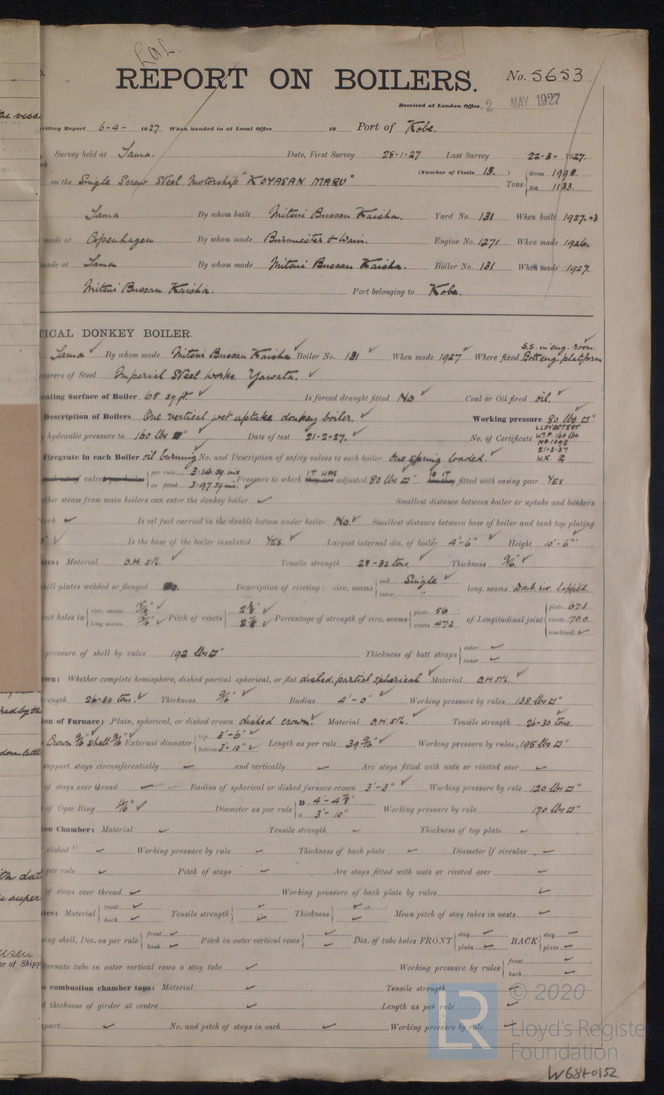 REPORT ON BOILERS.
No. 5653
Received at London Office 2 MAY 1927
Writing Report 6-4- 1927 When handed in at Local Office 19 Port of Kobe.
Survey held at Tama. Date, First Survey 28-1-27 Last Survey 22-3- 1927.
(Number of Visits 13.) Gross 1998.
on the Single Screw Steel Motorship "KOYASAN MARU" Tons Net 1133.
Tama By whom built Mitsui Bussan Kaisha. Yard No. 131 When built 1927.
made at Copenhagen By whom made Burmeister & Wain. Engine No. 1271 When made 1926.
made at Tama By whom made Mitsui Bussan Kaisha. Boiler No. 131 When made 1927.
Mitsui Bussan Kaisha. Port belonging to Kobe.
TICAL DONKEY BOILER.
Tama By whom made Mitsui Bussan Kaisha Boiler No. 131 When made 1927 Where fixed S.S. in eng. room.
turers of Steel Imperial Steel works, Yawata.
eating Surface of Boiler 68 sq ft Is forced draught fitted No Coal or Oil fired oil.
Description of Boilers One vertical wet uptake donkey boiler. Working pressure 80 lbs □"
hydraulic pressure to 160 lbs Date of test 21-2-27. No. of Certificate
LLOYDS TEST
W.P. 160 lbs
21-2-27
Firegrate in each Boiler oil burning No. and Description of safety valves to each boiler One spring loaded
per rule 3.14 sq ins
as fitted 3.97 sq in. Pressure to which it was adjusted 80 lbs □" fitted with easing gear Yes
ther steam from main boilers can enter the donkey boiler Smallest distance between boiler or uptake and bunkers
Is oil fuel carried in the double bottom under boiler No. Smallest distance between base of boiler and tank top plating
Is the base of the boiler insulated Yes. Largest internal dia. of boiler 4'-6" Height 10'-6"
Material O.H. Stl. Tensile strength 28-32 tons Thickness 9/16"
hell plates welded or flanged No. Description of riveting: circ. seams end Single inter. " long. seams Doub. riv. Lapped.
circ. seams long. seams Pitch of rivets Percentage of strength of circ. seams plate 56 rivets 47.2 of Longitudinal joint plate 67.1 rivets 70.0 combined
pressure of shell by rules 192 lbs □" Thickness of butt straps outer inner
Whether complete hemisphere, dished partial spherical, or flat dished, partial spherical Material O.H. Stl.
trength 26-30 ton. Thickness 9/16 Radius 4'-0" Working pressure by rules 138 lbs □"
on of Furnace: Plain, spherical, or dished crown dished crown. Material O.H. Stl. Tensile strength 26-30 tons.
External diameter top 3'-6" bottom 3'-10" Length as per rule Working pressure by rules 195 lbs □"
support stays circumferentially and vertically Are stays fitted with nuts or riveted over
of stays over thread Radius of spherical or dished furnace crown 3'-3" Working pressure by rule 120 lbs □"
of Ogee Ring Diameter as per rule D 4'-4 7/8" d 3'-10" Working pressure by rule 170 lbs □"
on Chamber: Material Tensile strength Thickness of top plate
dished Working pressure by rule Thickness of back plate Diameter if circular
per rule Pitch of stays Are stays fitted with nuts or riveted over
of stays over thread Working pressure of back plate by rules
tes: Material front back Tensile strength Thickness Mean pitch of stay tubes in nests
ing shell, Dia. as per rule front back Pitch in outer vertical rows Dia. of tube holes FRONT stay plain BACK stay plain
ternate tube in outer vertical rows a stay tube Working pressure by rules front back
o combustion chamber tops: Material Tensile strength
d thickness of girder at centre Length as per rule
part No. and pitch of stays in each Working pressure by rule
© 2020
LR Lloyd's Register
Foundation
W684-0152